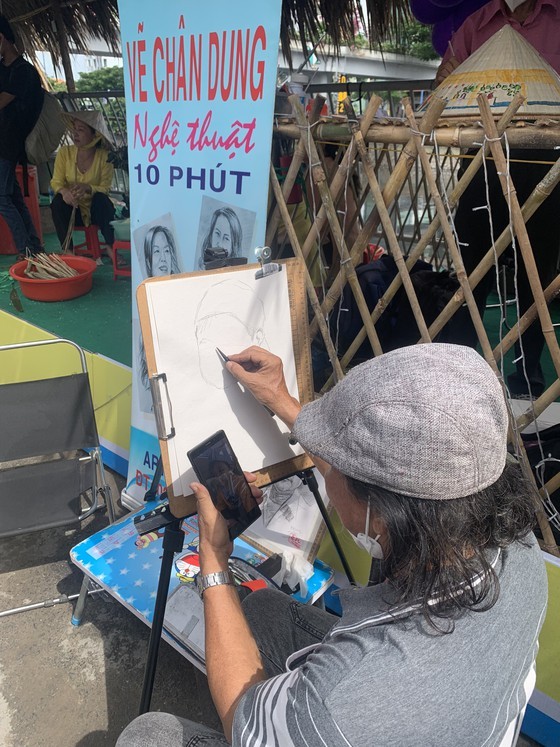 VẼ CHÂN DUNG
Nghệ thuật
10 PHÚT